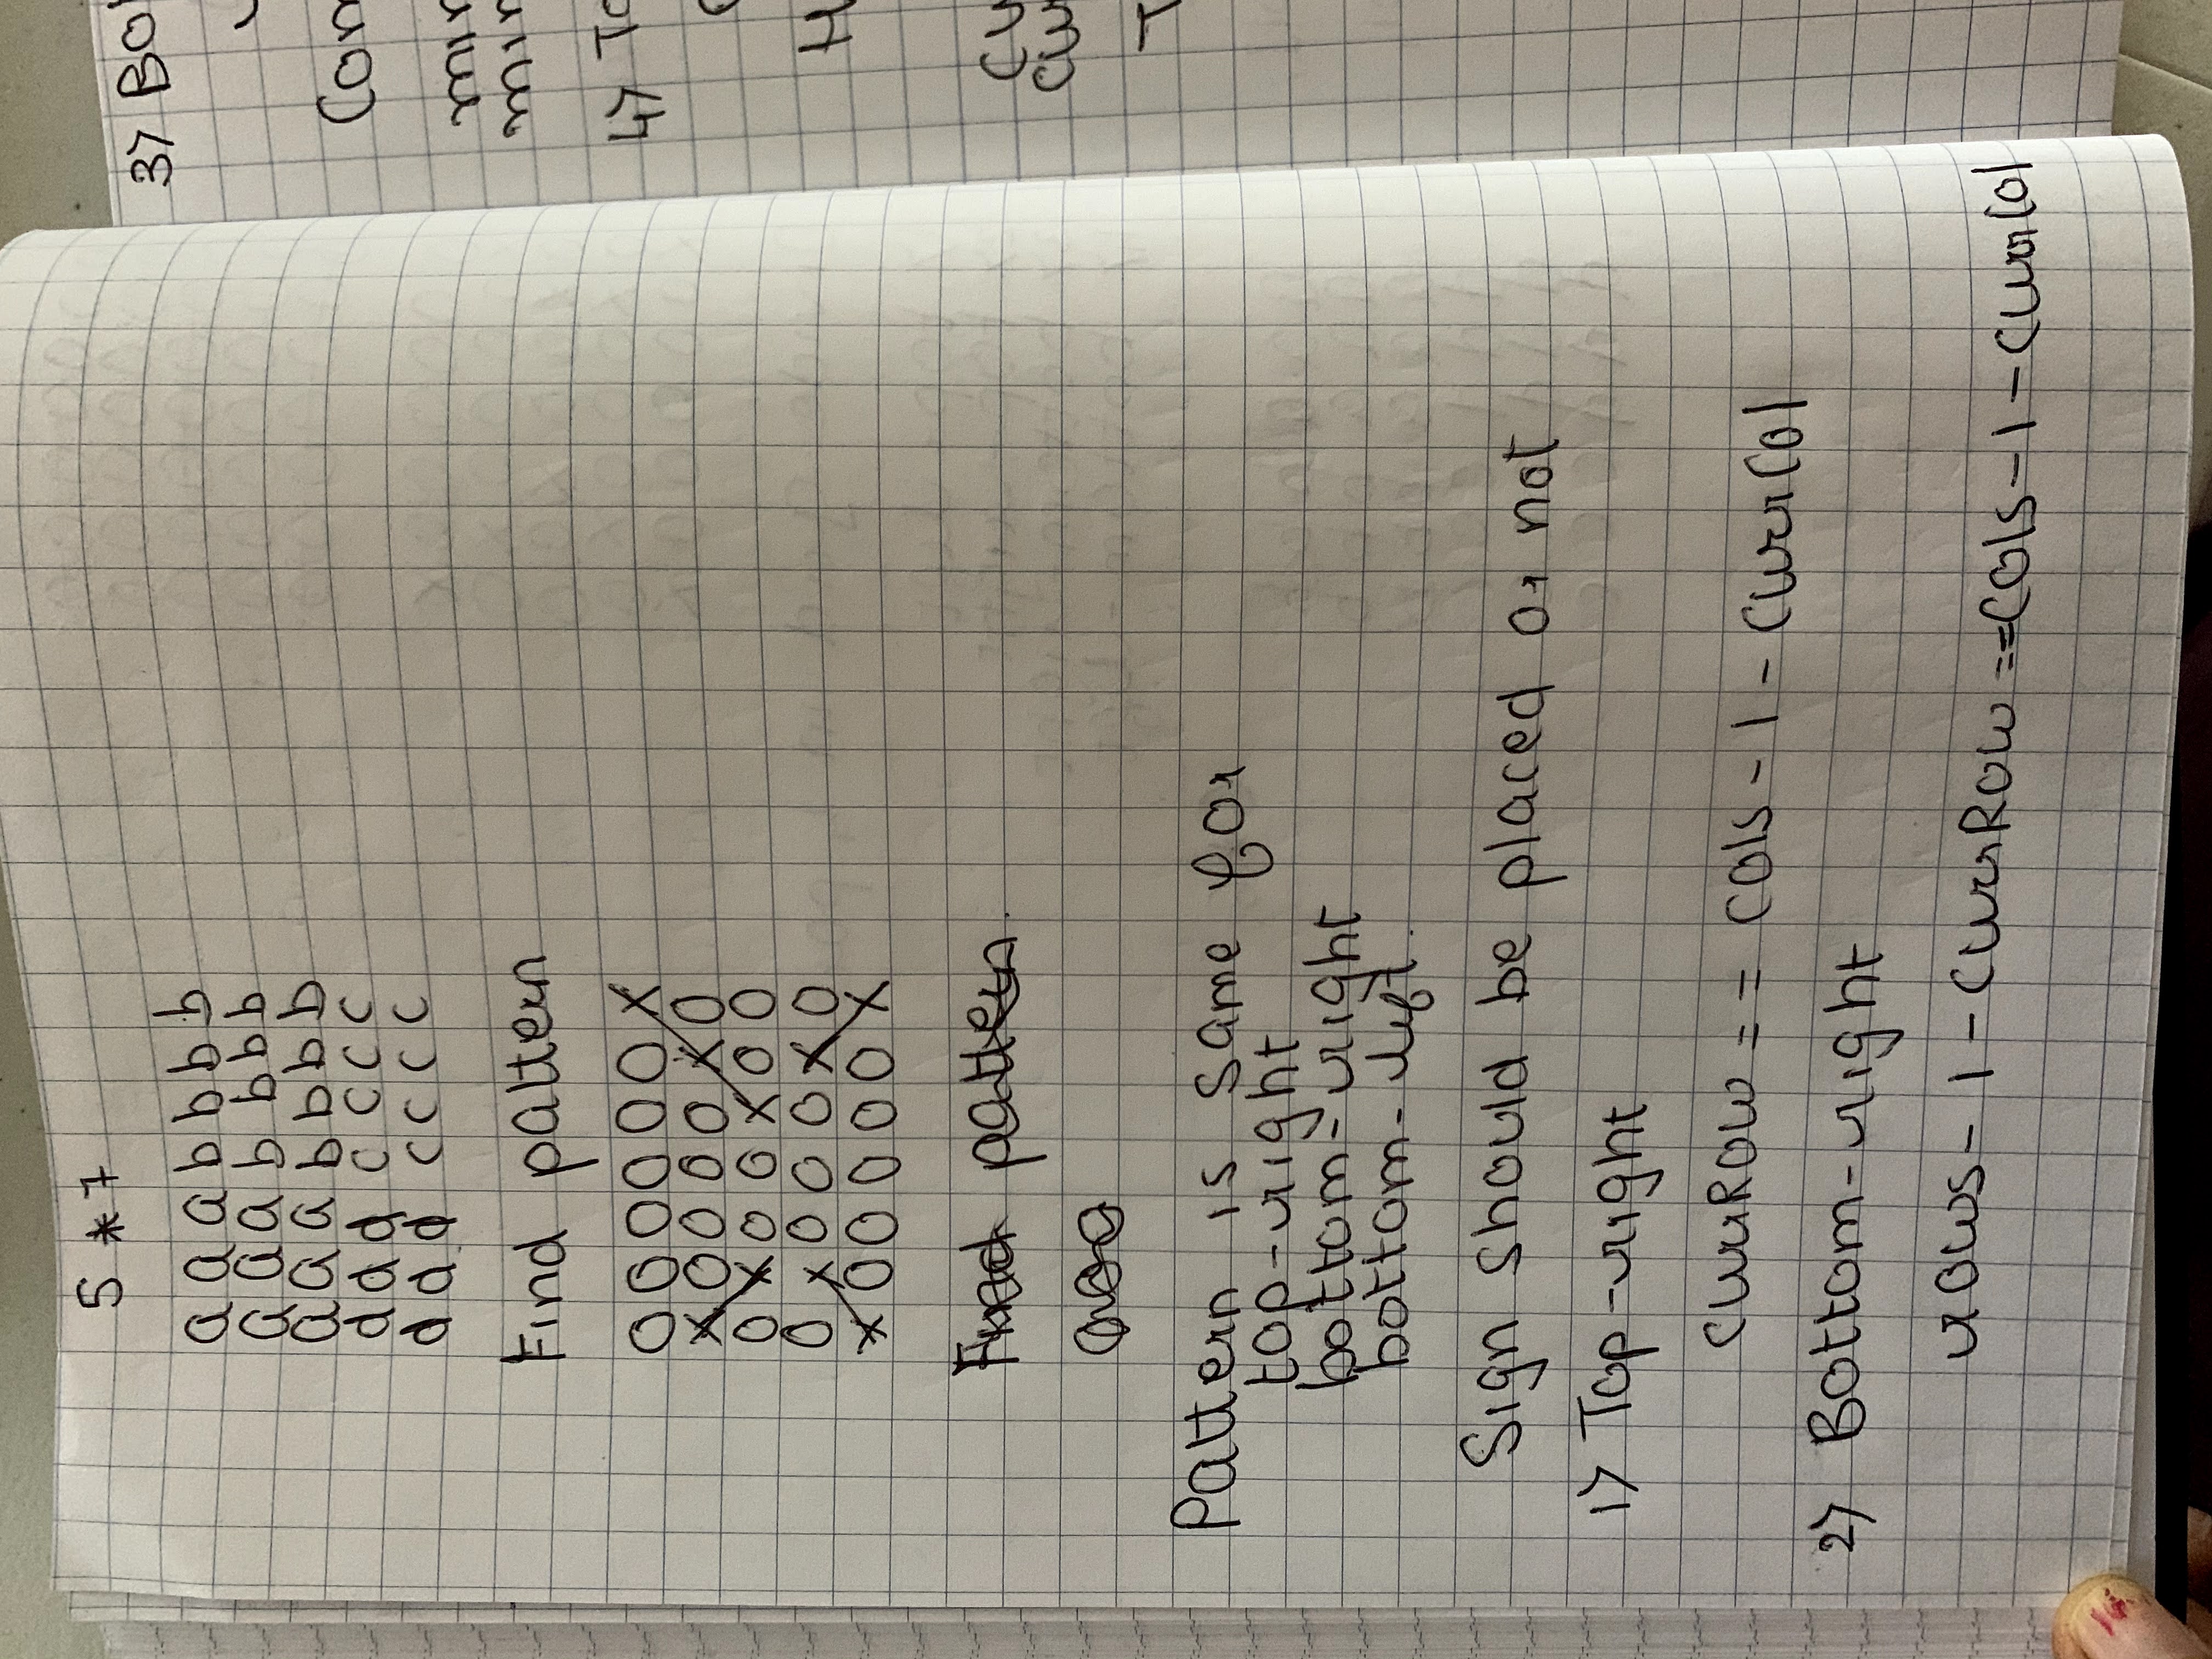 5 * 7
a a a b b b b
a a a b b b b
a a a b b b b
d d d c c c c
d d d c c c c
Find pattern
0 0 0 0 0 0 X
X 0 0 0 0 X 0
0 X 0 0 X 0 0
0 X 0 0 0 X 0
X 0 0 0 0 0 X
Find pattern.
Pattern is same for
top-right
bottom-right
bottom-left.
Sign should be placed or not
1> Top-right
currRow == cols-1-currCol
2> Bottom-right
rows-1-currRow ==cols-1-currCol
3>
4>